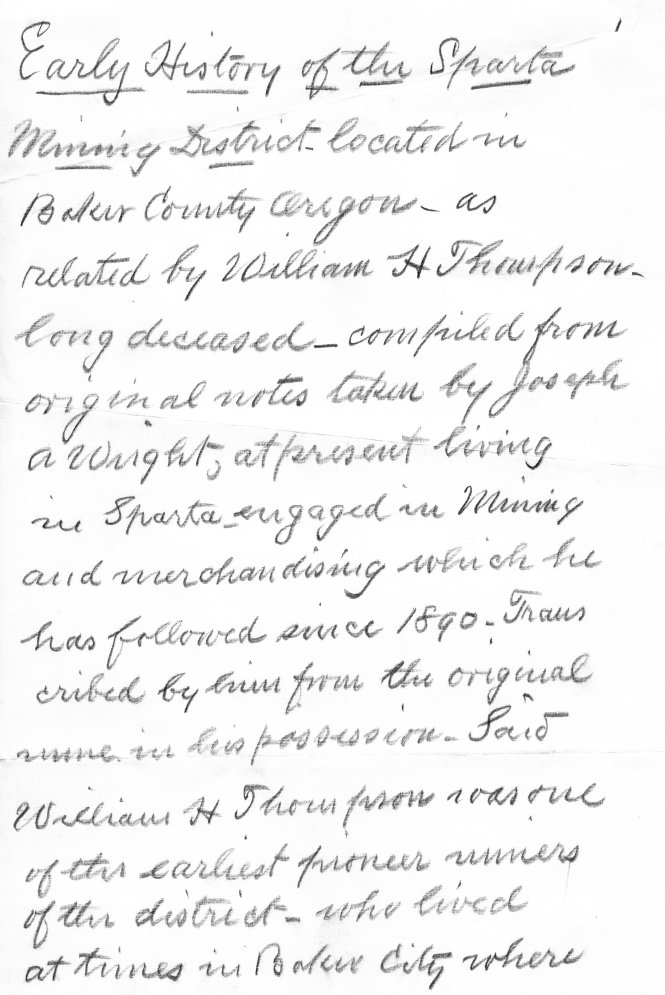 1
Early History of the Sparta
Mining District - located in
Baker County Oregon - as
related by William H Thompson -
long deceased - compiled from
original notes taken by Joseph
A Wright, at present living
in Sparta - engaged in Mining
and merchandising which he
has followed since 1890 - Trans
cribed by him from the original
in his possession - Said
William H Thompson was one
of the earliest pioneer miners
of the district - who lived
at times in Baker City where